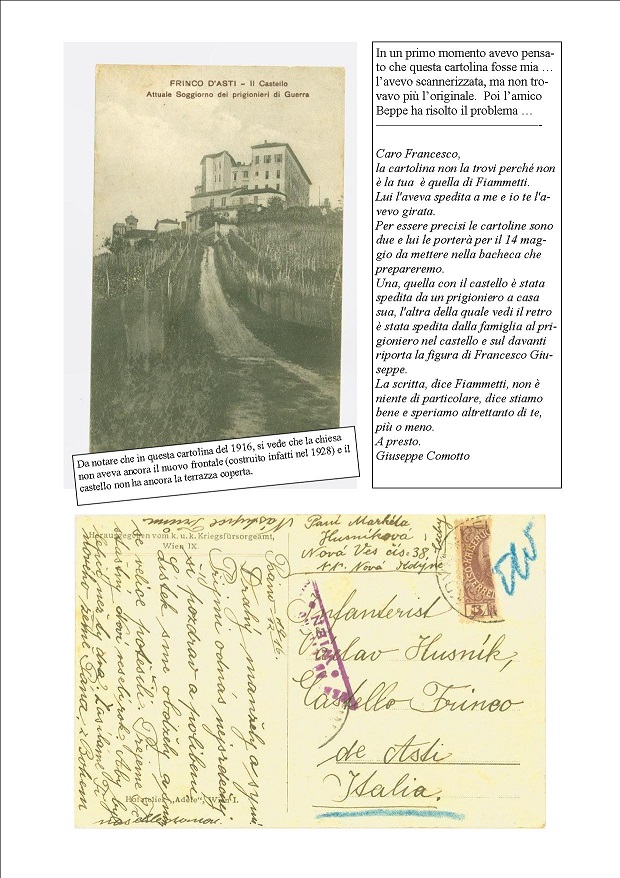 FRINCO D'ASTI – Il Castello
Attuale Soggiorno dei prigionieri di Guerra
Da notare che in questa cartolina del 1916, si vede che la chiesa
non aveva ancora il nuovo frontale (costruito infatti nel 1928) e il
castello non ha ancora la terrazza coperta.
In un primo momento avevo pensa-
to che questa cartolina fosse mia …
l'avevo scannerizzata, ma non tro-
vavo più l'originale. Poi l'amico
Beppe ha risolto il problema …
Caro Francesco,
la cartolina non la trovi perché non
è la tua è quella di Fiammetti.
Lui l'aveva spedita a me e io te l'a-
vevo girata.
Per essere precisi le cartoline sono
due e lui le porterà per il 14 mag-
gio da mettere nella bacheca che
prepareremo.
Una, quella con il castello è stata
spedita da un prigioniero a casa
sua, l'altra della quale vedi il retro
è stata spedita dalla famiglia al pri-
gioniero nel castello e sul davanti
riporta la figura di Francesco Giu-
seppe.
La scritta, dice Fiammetti, non è
niente di particolare, dice stiamo
bene e speriamo altrettanto di te,
più o meno.
A presto.
Giuseppe Comotto
Herausgegeben vom k. u. k. Kriegsfürsorgeamt,
Wien IX.
Drahý manžely a syni
Přijmi odnás nejsrdečněj
ší pozdrav a políbení
Lístek sme obdrželi a
velice potěšil Přejeme
šťastný
Hofatelier „Adèle", Wien I.
Paní Markéta
Husníková
Nová Ves čís: 38,
Infanterist
Václav Husník,
Castello Frinco
de Asti
Italia.